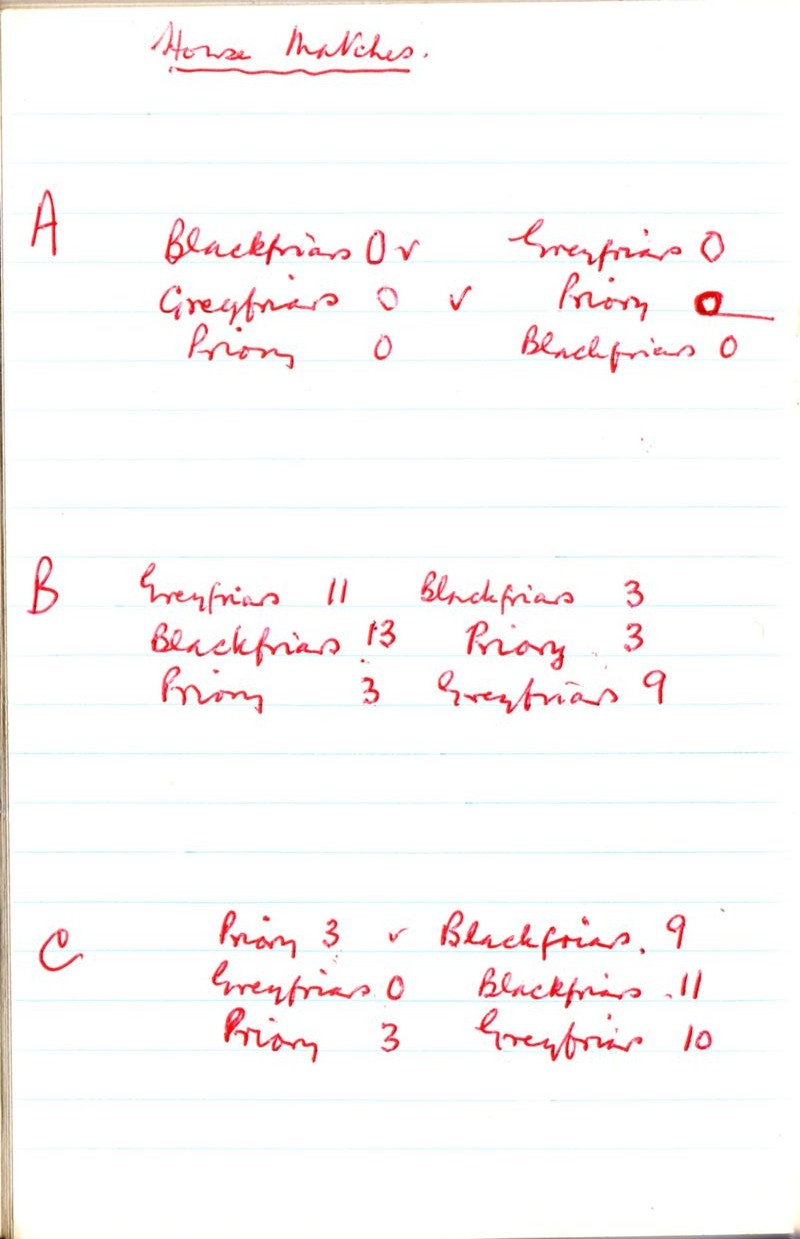 House Matches.
A
Blackfriars 0 v Greyfriars 0
Greyfriars 0 v Priory 0
Priory 0 Blackfriars 0
B
Greyfriars 11 Blackfriars 3
Blackfriars 13 Priory 3
Priory 3 Greyfriars 9
C
Priory 3 v Blackfriars. 9
Greyfriars 0 Blackfriars 11
Priory 3 Greyfriars 10